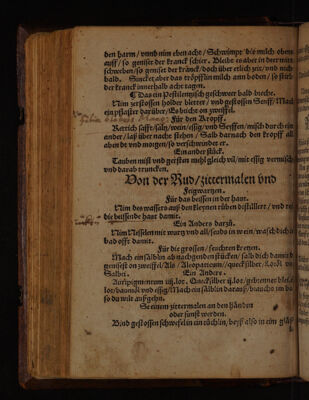 den harm/vnnd nim eben acht/Schwimpt die milch oben
auff/so geniset der kranck schier. Bleibt es aber in der mit
schweben/so geniset der kränck/doch über etlich zeit/vnd nicht
bald. Sincket aber das tröpfflin milch ann boden/so stirbt
der kranck innerhalb acht tagen.
¶ Das ein Pestilentzisch geschweer bald breche.
Nim zerstossen holder bletter/vnd gestossen Senff/Mach
ein pflaster darüber/Es bricht on zweiffel.
Für den Kropff.
Rettich safft/saltz/wein/essig/vnd Senffen/misch durch ein
ander/laß über nacht stehen/Salb darnach den kropff all
abendt vnd morgen/so verschwindet er.
Ein ander stück.
Tauben mist vnd gersten mehl gleich vil/mit essig vermischt
vnd darab truncken.
Von der Rud/zittermalen vnd
Feigwartzen.
Für das beissen in der haut.
Nim des wassers auß den kleynen rüben distilliert/vnd reib
die beissende haut damit.
Ein Anders darzů.
Nim Nesseln mit wurtz vnd all/seuds in wein/wasch dich im
bad offt damit.
Für die grossen/feuchten kretzen.
Mach ein sälblin ab nachgenden stücken/salb dich damit du
genisest on zweiffel/Alo/Aloepaticum/quecksilber/Loröl vnd
Salbei.
Ein Anders.
Auripigmentum iiij.lot. Quecksilber ij.lot/gebrenner blei
lot/baumöl vnd essig/Mach ein sälblin darauß/brauchs im bad
so du wilt außgehn.
So einem zittermalen an den händen
oder sunst werden.
Bind gestossen schwefel in ein tüchlin/beyß also in ein glaß